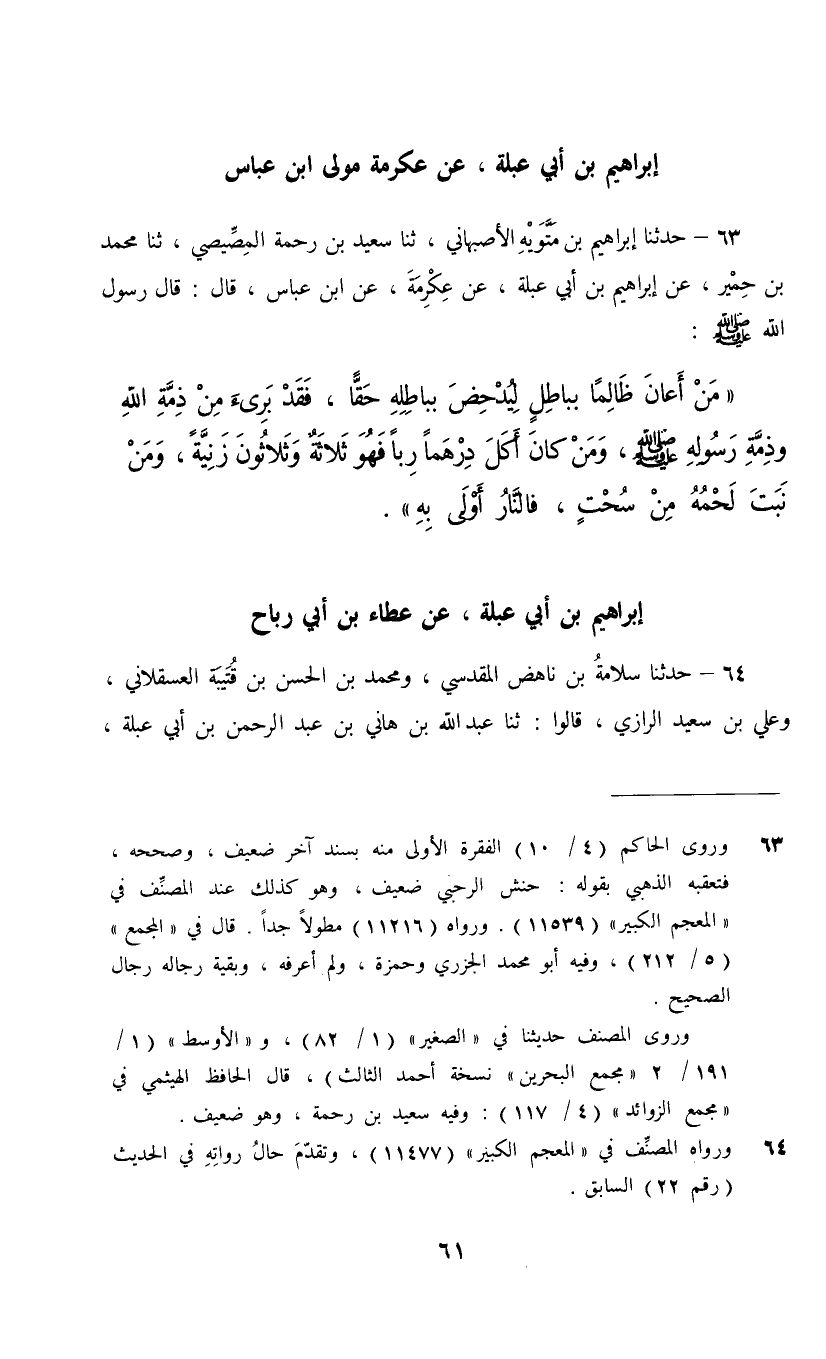 إبراهيم بن أبي عبلة ، عن عكرمة مولى ابن عباس
٦٣ – حدثنا إبراهيم بن مَتَّوَيْهِ الأصبهاني ، ثنا سعيد بن رحمة المِصِّيصي ، ثنا محمد
بن حِمْير ، عن إبراهيم بن أبي عبلة ، عن عِكْرِمَةَ ، عن ابن عباس ، قال : قال رسول
الله ﷺ :
« مَنْ أَعانَ ظَالِمًا بباطلٍ لِيُدْحِضَ بباطِلِهِ حَقًّا ، فَقَدْ بَرِىءَ مِنْ ذِمَّةِ اللهِ
وذِمَّةِ رَسُولِهِ ﷺ ، وَمَنْ كانَ أَكَلَ دِرْهَماً رِباً فَهُوَ ثَلاثَةٌ وَثَلاثُونَ زَنِيَّةً ، وَمَنْ
نَبَتَ لَحْمُهُ مِنْ سُحْتٍ ، فالنَّارُ أَوْلَى بِهِ» .
إبراهيم بن أبي عبلة ، عن عطاء بن أبي رباح
٦٤ – حدثنا سلامةُ بن ناهض المقدسي ، ومحمد بن الحسن بن قُتَيبَة العسقلاني ،
وعلي بن سعيد الرازي ، قالوا : ثنا عبد الله بن هاني بن عبد الرحمن بن أبي عبلة ،
٦٣ وروى الحاكم (٤ / ١٠) الفقرة الأولى منه بسند آخر ضعيف ، وصححه ،
فتعقبه الذهبي بقوله : حنش الرحبي ضعيف ، وهو كذلك عند المصنِّف في
«المعجم الكبير» (١١٥٣٩) . ورواه (١١٢١٦) مطولاً جداً . قال في « المجمع »
(٥ / ٢١٢) ، وفيه أبو محمد الجزري وحمزة ، ولم أعرفه ، وبقية رجاله رجال
الصحيح .
وروى المصنف حديثنا في «الصغير» (١ / ٨٢) ، و «الأوسط» (١ /
١٩١ / ٢ «مجمع البحرين» نسخة أحمد الثالث) ، قال الحافظ الهيثمي في
«مجمع الزوائد» (٤ / ١١٧) : وفيه سعيد بن رحمة ، وهو ضعيف .
٦٤ ورواه المصنِّف في «المعجم الكبير» (١١٤٧٧) ، وتقدّمَ حالُ رواتِهِ في الحديث
(رقم ٢٢) السابق .
٦١